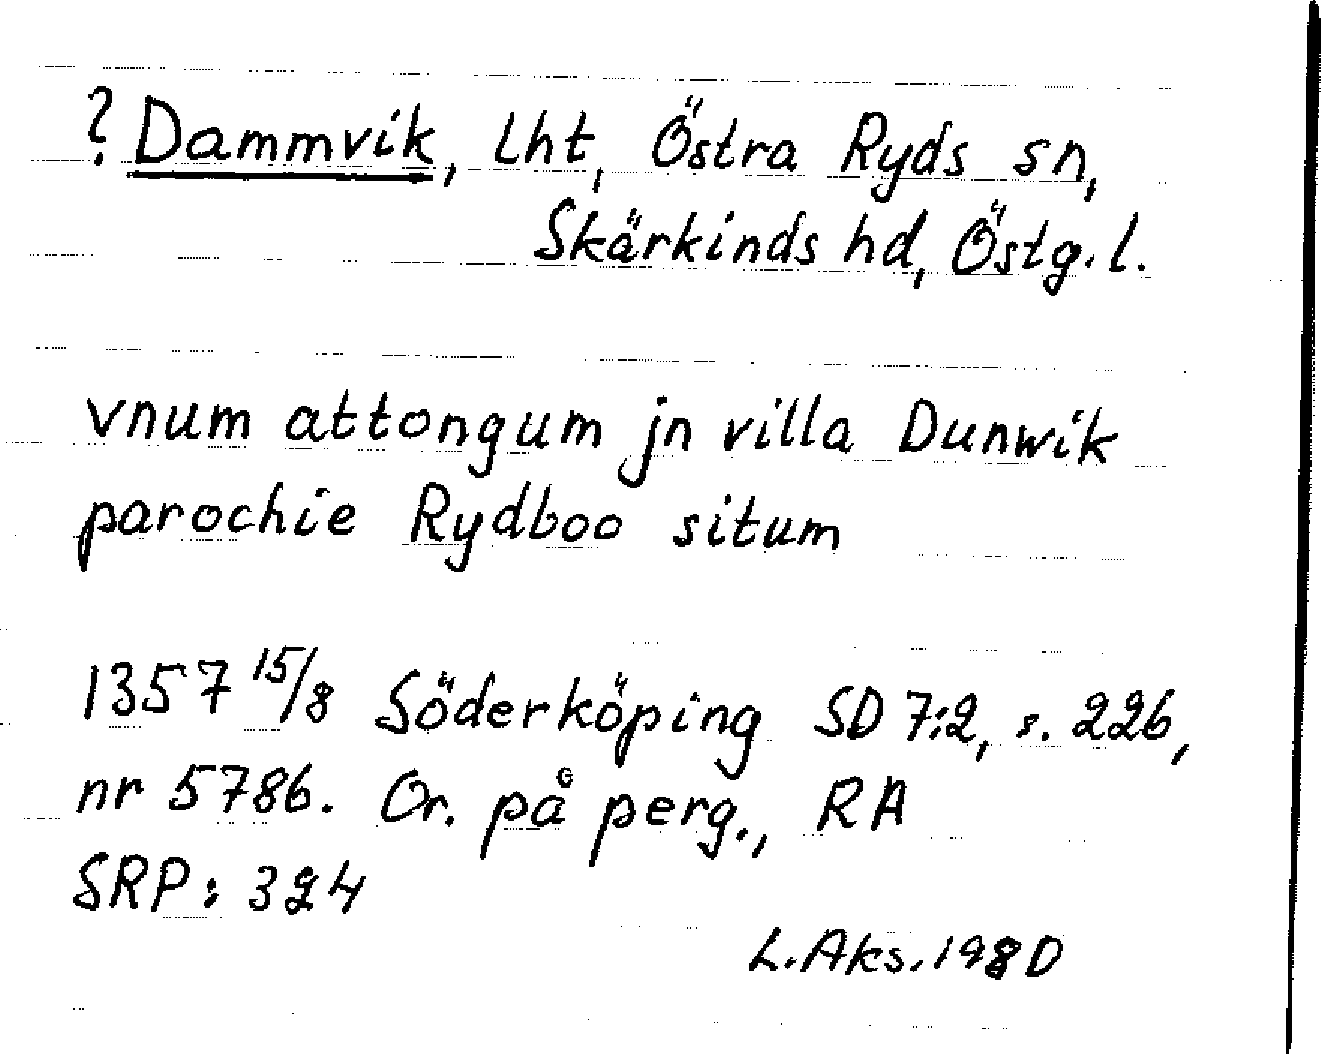 ? Dammvik, lht, Östra Ryds sn,
Skärkinds hd, Östg. l.
vnum attongum jn villa Dunwik
parochie Rydboo situm
1357 15/8 Söderköping SD 7:2, s. 226,
nr 5786. Or. på perg., RA
SRP: 324
L. Aks. 1980